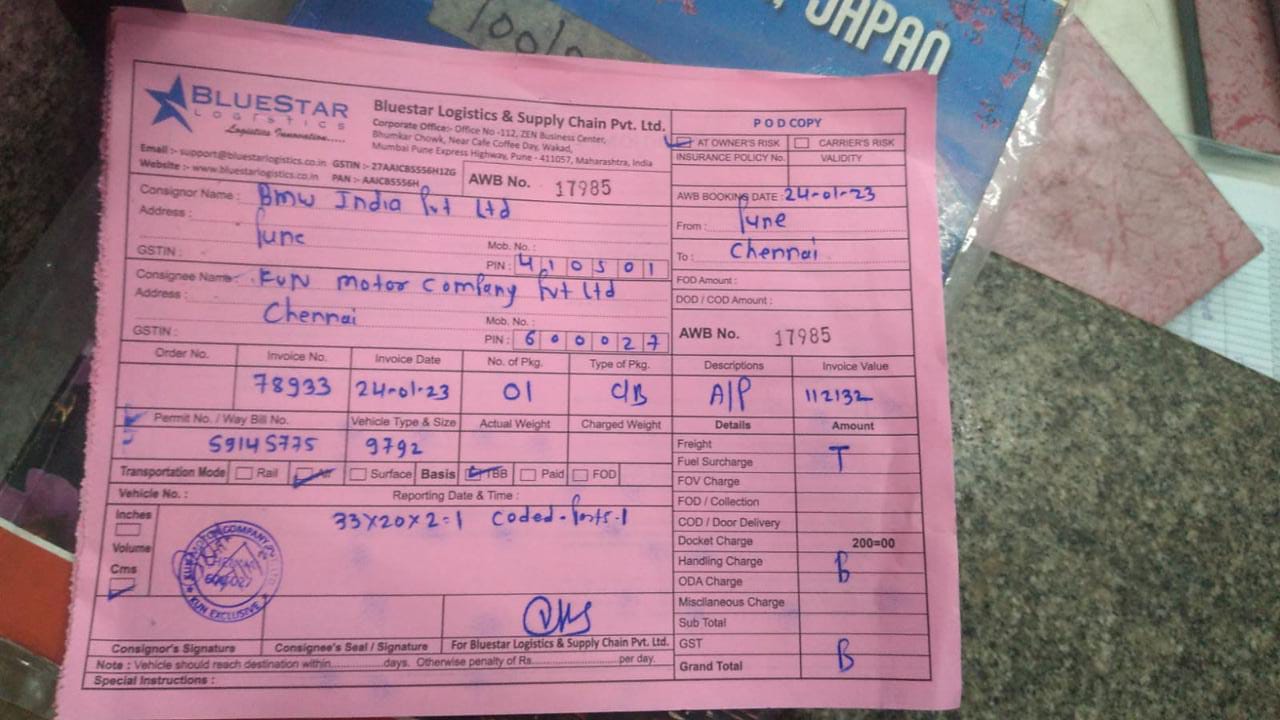 JAPAN
100/
BLUESTAR
LOGISTICS
Logistics Innovation.....
Bluestar Logistics & Supply Chain Pvt. Ltd.
Corporate Office:- Office No -112, ZEN Business Center,
Bhumkar Chowk, Near Cafe Coffee Day, Wakad,
Mumbai Pune Express Highway, Pune - 411057, Maharashtra, India
Email :- support@bluestarlogistics.co.in GSTIN :- 27AAICB5556H1ZG
Website :- www.bluestarlogistics.co.in PAN :- AAICB5556H
AWB No. 17985
P O D COPY
AT OWNER'S RISK CARRIER'S RISK
INSURANCE POLICY No. VALIDITY
AWB BOOKING DATE : 24-01-23
From : Pune
To : Chennai
FOD Amount :
DOD / COD Amount :
AWB No. 17985
Consignor Name : BMW India Pvt Ltd
Address :
Pune
Mob. No. :
GSTIN : PIN : 410501
Consignee Name :- KUN Motor Company Pvt Ltd
Address :
Chennai
Mob. No. :
GSTIN : PIN : 600027
Order No. Invoice No. Invoice Date No. of Pkg. Type of Pkg. Descriptions Invoice Value
78933 24-01-23 01 C/B A/P 112132
Permit No. / Way Bill No. Vehicle Type & Size Actual Weight Charged Weight Details Amount
59145775 9792
Transportation Mode Rail Air Surface Basis TBB Paid FOD
Vehicle No. : Reporting Date & Time :
33x20x2=1 Coded-Parts-1
Inches
Volume
Cms
KUN MOTOR COMPANY PVT LTD
CHENNAI
600 027
KUN EXCLUSIVE
Freight T
Fuel Surcharge
FOV Charge
FOD / Collection
COD / Door Delivery
Docket Charge 200=00
Handling Charge B
ODA Charge
Miscllaneous Charge
Sub Total
GST
Grand Total B
Consignor's Signature Consignee's Seal / Signature For Bluestar Logistics & Supply Chain Pvt. Ltd.
Note : Vehicle should reach destination within..............days. Otherwise penalty of Rs........................per day.
Special Instructions :